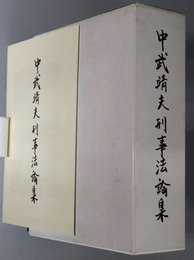 中武靖夫刑事法論集
中武靖夫刑事法論集